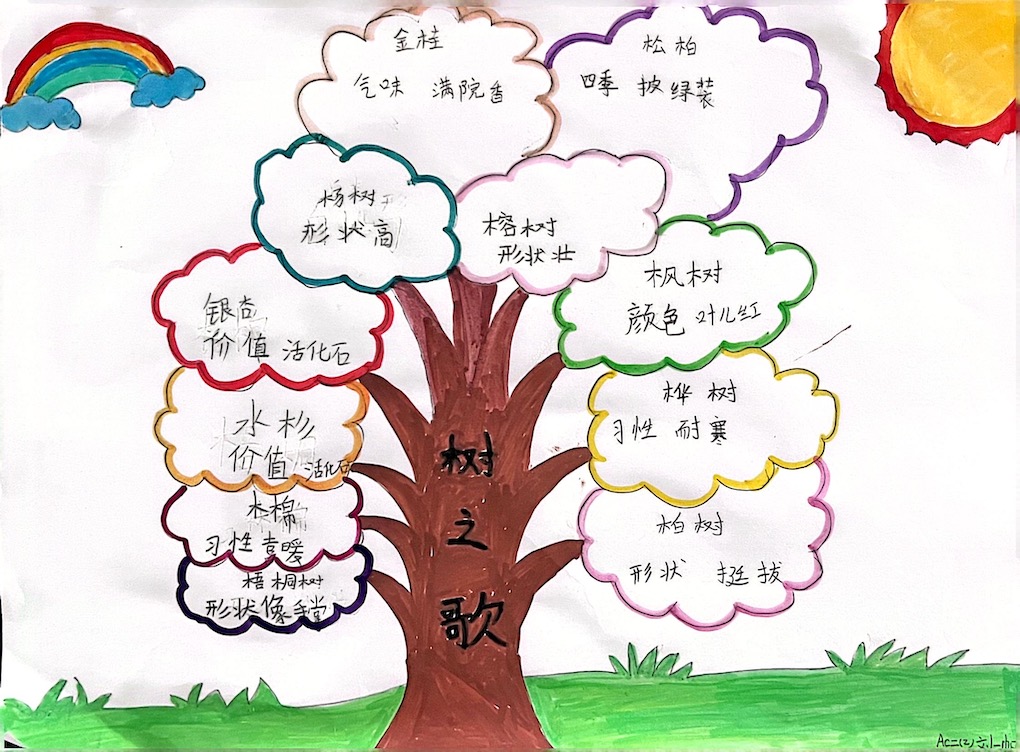 金桂
气味 满院香
松柏
四季 披绿装
杨树
形状高
榕树
形状壮
枫树
颜色 叶儿红
银杏
价值 活化石
桦树
习性 耐寒
水杉
价值 活化石
木棉
习性喜暖
柏树
形状 挺拔
梧桐树
形状像手掌
树
之
歌